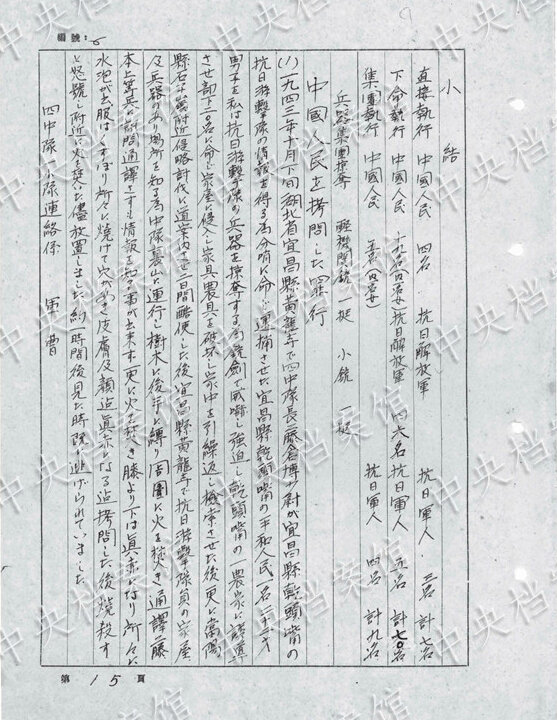 編號: 6
小結
直接執行 中國人民 四名 抗日解放軍 抗日軍人 三名 計七名
下命執行 中國人民 十九名(内名女)抗日解放軍 四六名 抗日軍人 五名 計七〇名
集團執行 中國人民 五名(内名女) 抗日軍人 四名 計九名
兵器集團掠奪 軽機関銃 一挺 小銃 一挺
中國人民を拷問した罪行
(1) 一九四三年十月下旬湖北省宜昌縣黄龍寺で四中隊長藤倉博少尉が宜昌縣乾頭嘴の
抗日游撃隊の情報を得る為分哨に命じ逮捕させた宜昌縣乾頭嘴の平和人民一名二十二才
男子を私は抗日游撃隊の兵器を掠奪する為銃剣で威嚇し強迫し乾頭嘴の一農家に誘導
させ部下二〇名に命じ家屋に侵入し家具農具を破壊し家中を引繰返し捜索させた後更に當陽
縣石 附近侵略討伐に道案内させ 日間酷使した後宜昌縣黄龍寺で抗日游撃隊員の家屋
及兵器のあり場所を知る為中隊裏山に連行し樹木に後手に縛り周圍に火を焚き通譯藤
本上等兵に訊問通譯させすも情報を知る事が出来ず更に火を焚き膝より下は真赤になり所々に
水泡が出服はくすぼり所々に焼けて穴があき皮膚及顔迄真赤になる迄拷問した後焼殺す
と怒號し附近に火を焚いた儘放置しました 約一時間後見た時既に逃げられていました
四中隊一小隊連絡係 軍曹
第 15 頁
中央档案馆